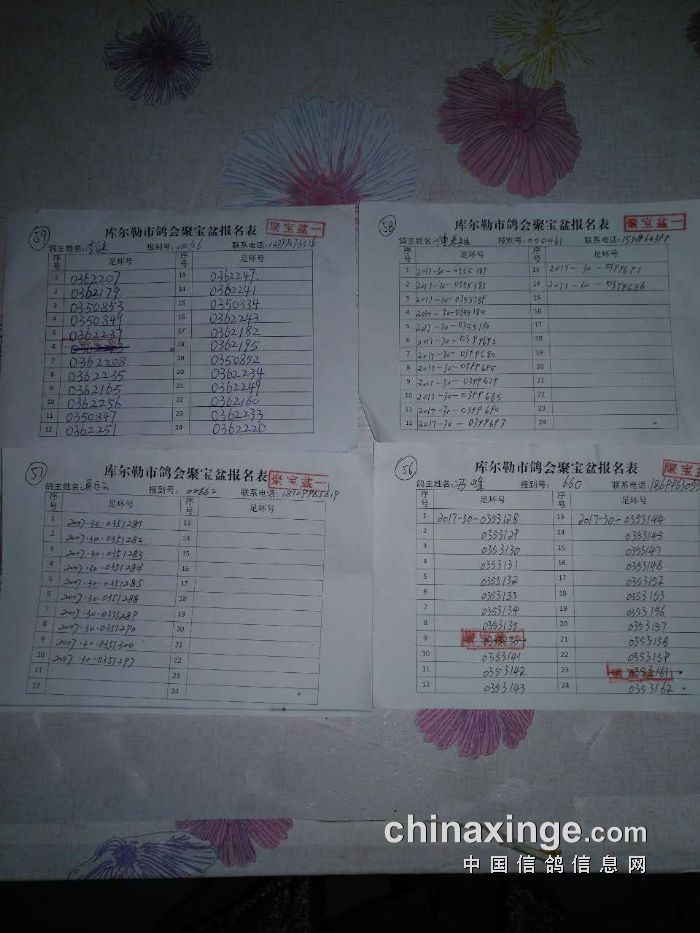 59
库尔勒市鸽会聚宝盆报名表 聚宝盆一
鸽主姓名: 报到号: 联系电话:
序号 足环号 序号 足环号
1 0362207 13 0362247
2 0362179 14 0362241
3 0350853 15 0350334
4 0350849 16 0362243
5 0362237 17 0362182
6 18 0362195
7 0362208 19 0350852
8 0362235 20 0362234
9 0362165 21 0362249
10 0362256 22 0362160
11 0350847 23 0362233
12 0362251 24 0362220
58
库尔勒市鸽会聚宝盆报名表 聚宝盆一
鸽主姓名: 报到号: 000461 联系电话:
序号 足环号 序号 足环号
1 2017-30-0355187 13 2017-30-0399697
2 2017-30-0355183 14 2017-30-0399686
3 15
4 2017-30-0355184 16
5 2017-30-0355190 17
6 2017-30-0399692 18
7 2017-30-0399680 19
8 2017-30-0399695 20
9 2017-30-0399679 21
10 2017-30-0399685 22
11 2017-30-0399690 23
12 2017-30-0399693 24
51
库尔勒市鸽会聚宝盆报名表 聚宝盆一
鸽主姓名: 报到号: 00862 联系电话:
序号 足环号 序号 足环号
1 2017.30.0351281 13
2 2017.30.0351282 14
3 2017.30.0351283 15
4 2017.30.0351284 16
5 2017.30.0351285 17
6 2017.30.0351288 18
7 2017.30.0351289 19
8 2017.30.0351290 20
9 2017.30.0351300 21
10 2017.30.0351297 22
11 23
12 24
56
库尔勒市鸽会聚宝盆报名表 聚宝盆
鸽主姓名: 冯峰 报到号: 660 联系电话:
序号 足环号 序号 足环号
1 2017-30-0353128 13 2017-30-0353144
2 0353129 14 0353145
3 0353130 15 0353147
4 0353131 16 0353148
5 0353132 17 0353152
6 0353133 18 0353153
7 0353134 19 0353156
8 0353135 20 0353157
9 聚宝盆 21 0353158
10 0353141 22 0353159
11 0353142 23 0353161
12 0353143 24 0353162
chinaxinge.com
中国信鸽信息网